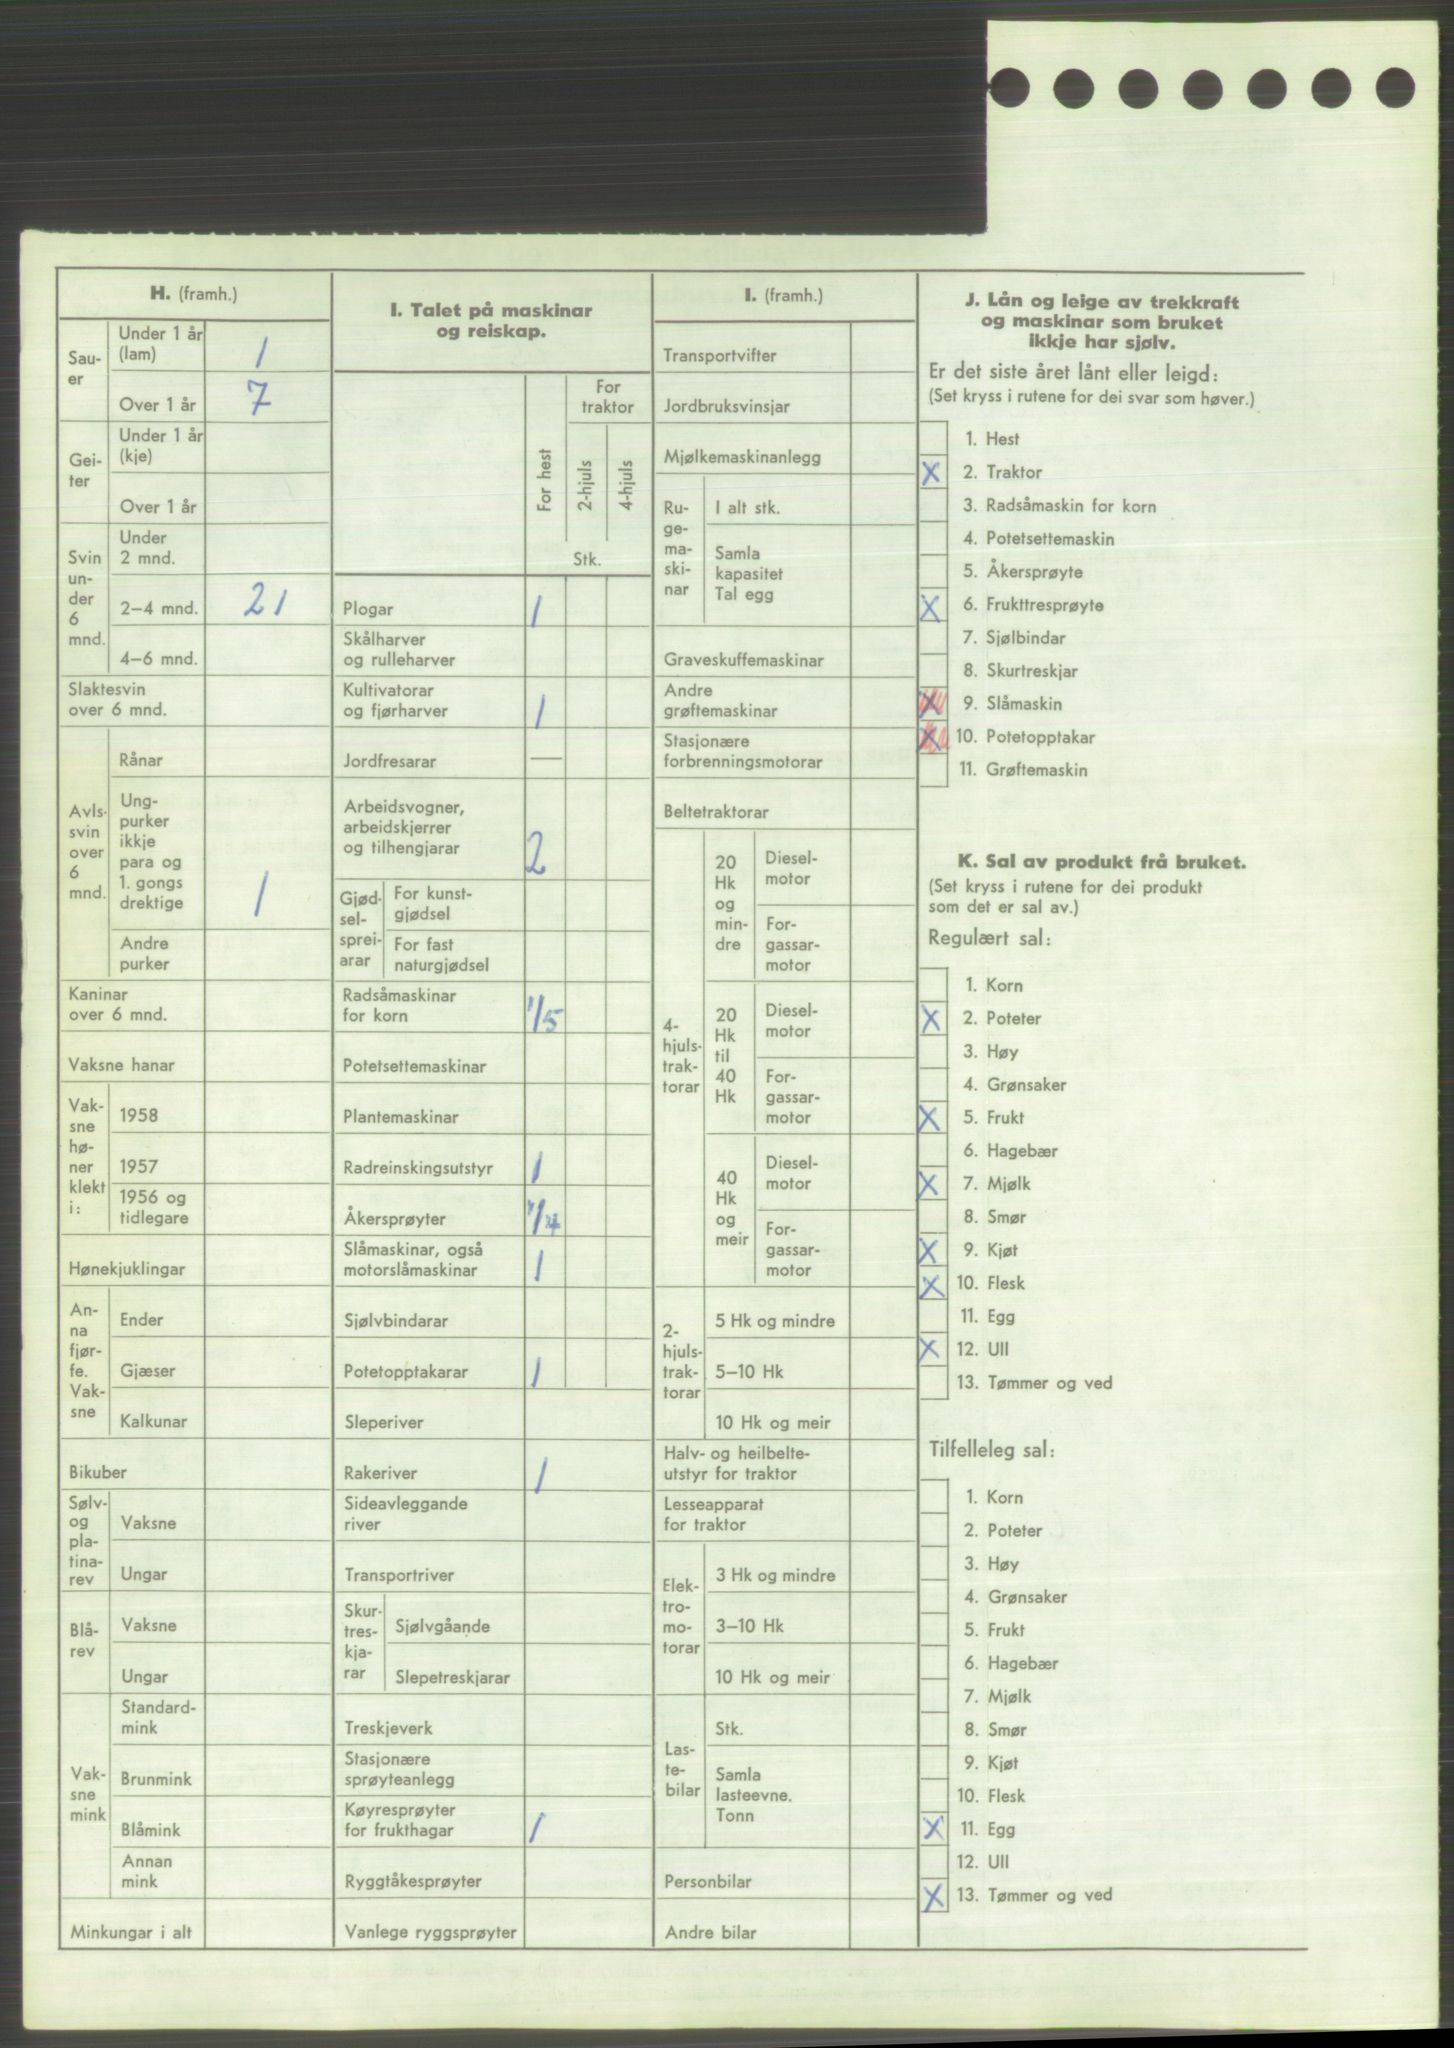 H. (framh.)
Sau-
er
Under 1 år
(lam) 1
Over 1 år 7
Gei-
ter
Under 1 år
(kje)
Over 1 år
Svin
un-
der
6
mnd.
Under
2 mnd.
2–4 mnd. 21
4–6 mnd.
Slaktesvin
over 6 mnd.
Avls-
svin
over
6
mnd.
Rånar
Ung-
purker
ikkje
para og
1. gongs
drektige 1
Andre
purker
Kaninar
over 6 mnd.
Vaksne hanar
Vak-
sne
hø-
ner
klekt
i:
1958
1957
1956 og
tidlegare
Hønekjuklingar
An-
na
fjør-
fe.
Vak-
sne
Ender
Gjæser
Kalkunar
Bikuber
Sølv-
og
pla-
tina-
rev
Vaksne
Ungar
Blå-
rev
Vaksne
Ungar
Vak-
sne
mink
Standard-
mink
Brunmink
Blåmink
Annan
mink
Minkungar i alt
I. Talet på maskinar
og reiskap.
For hest
For
traktor
2-hjuls
4-hjuls
Stk.
Plogar 1
Skålharver
og rulleharver
Kultivatorar
og fjørharver 1
Jordfresarar —
Arbeidsvogner,
arbeidskjerrer
og tilhengjarar 2
Gjød-
sel-
sprei-
arar
For kunst-
gjødsel
For fast
naturgjødsel
Radsåmaskinar
for korn 1/5
Potetsettemaskinar
Plantemaskinar
Radreinskingsutstyr 1
Åkersprøyter 1/4
Slåmaskinar, også
motorslåmaskinar 1
Sjølvbindarar
Potetopptakarar 1
Sleperiver
Rakeriver 1
Sideavleggande
river
Transportriver
Skur-
tres-
kja-
rar
Sjølvgåande
Slepetreskjarar
Treskjeverk
Stasjonære
sprøyteanlegg
Køyresprøyter
for frukthagar 1
Ryggtåkesprøyter
Vanlege ryggsprøyter
I. (framh.)
Transportvifter
Jordbruksvinsjar
Mjølkemaskinanlegg
Ru-
ge-
ma-
ski-
nar
I alt stk.
Samla
kapasitet
Tal egg
Graveskuffemaskinar
Andre
grøftemaskinar
Stasjonære
forbrenningsmotorar
Beltetraktorar
4-
hjuls-
trak-
torar
20
Hk
og
min-
dre
Diesel-
motor
For-
gassar-
motor
20
Hk
til
40
Hk
Diesel-
motor
For-
gassar-
motor
40
Hk
og
meir
Diesel-
motor
For-
gassar-
motor
2-
hjuls-
trak-
torar
5 Hk og mindre
5–10 Hk
10 Hk og meir
Halv- og heilbelte-
utstyr for traktor
Lesseapparat
for traktor
Elek-
tro-
mo-
torar
3 Hk og mindre
3–10 Hk
10 Hk og meir
Las-
te-
bilar
Stk.
Samla
lasteevne.
Tonn
Personbilar
Andre bilar
J. Lån og leige av trekkraft
og maskinar som bruket
ikkje har sjølv.
Er det siste året lånt eller leigd:
(Set kryss i rutene for dei svar som høver.)
1. Hest
X 2. Traktor
3. Radsåmaskin for korn
4. Potetsettemaskin
5. Åkersprøyte
X 6. Frukttresprøyte
7. Sjølbindar
8. Skurtreskjar
X 9. Slåmaskin
X 10. Potetopptakar
11. Grøftemaskin
K. Sal av produkt frå bruket.
(Set kryss i rutene for dei produkt
som det er sal av.)
Regulært sal:
1. Korn
X 2. Poteter
3. Høy
4. Grønsaker
X 5. Frukt
6. Hagebær
X 7. Mjølk
8. Smør
X 9. Kjøt
X 10. Flesk
11. Egg
X 12. Ull
13. Tømmer og ved
Tilfelleleg sal:
1. Korn
2. Poteter
3. Høy
4. Grønsaker
5. Frukt
6. Hagebær
7. Mjølk
8. Smør
9. Kjøt
10. Flesk
X 11. Egg
12. Ull
X 13. Tømmer og ved